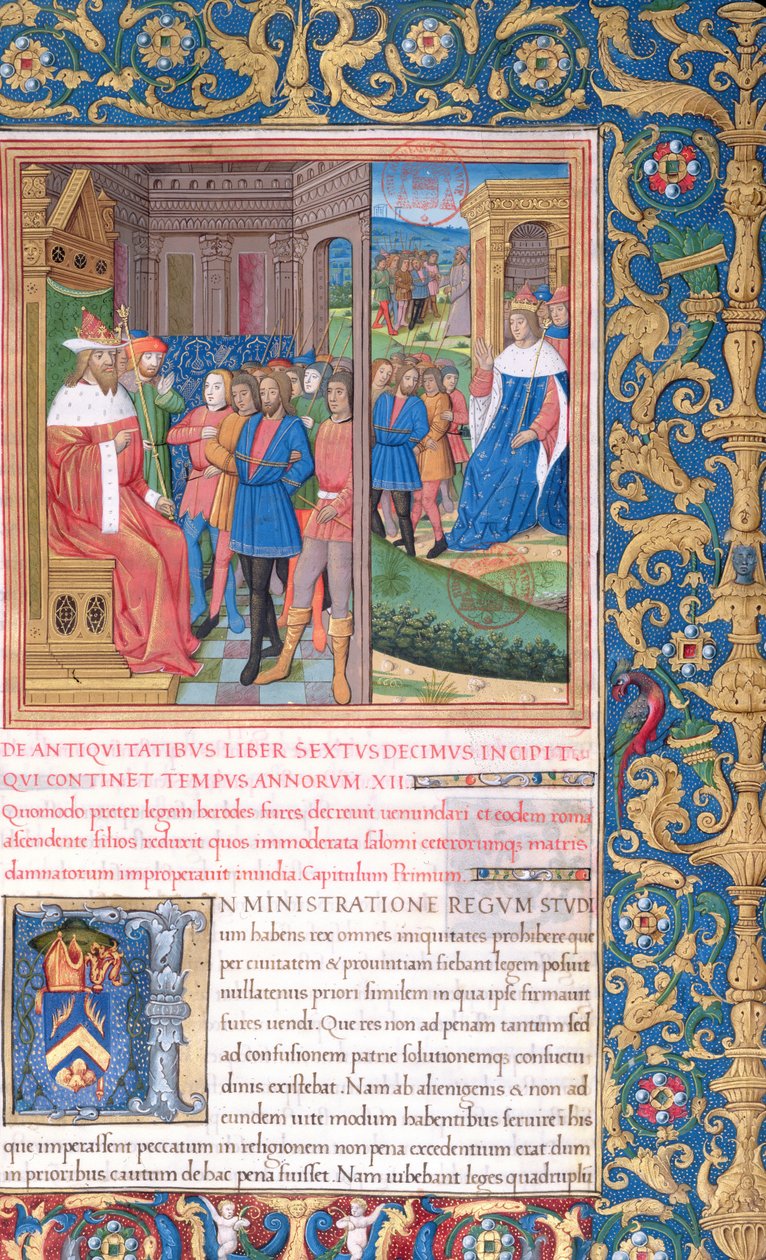 DE ANTIQVITATIBVS LIBER SEXTVS DECIMVS INCIPIT
QVI CONTINET TEMPVS ANNORVM XII
Quomodo preter legem herodes fures decreuit uenundari et eodem roma
ascendente filios reduxit quos immoderata salomi ceterorumq; matris
damnatorum improperauit inuidia. Capitulum Primum.
IN MINISTRATIONE REGVM STVDI
um habens rex omnes iniquitates prohibere que
per ciuitatem & prouintiam fiebant legem posuit
nullatenus priori similem in qua ipse firmauit
fures uendi. Que res non ad penam tantum sed
ad confusionem patrie solutionemq; consuetu
dinis existebat. Nam ab alienigenis & non ad
eundem uite modum habentibus seruire his
que imperassent peccatum in religionem non pena excedentium erat. dum
in prioribus cautum de hac pena fuisset. Nam iubebant leges quadrupli